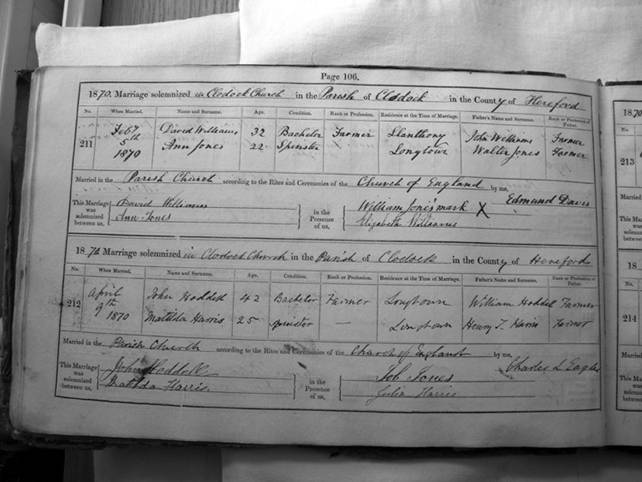 Page 106.
1870. Marriage solemnized in Clodock Church in the Parish of Clodock in the County of Hereford
No. When Married. Name and Surname. Age. Condition. Rank or Profession. Residence at the Time of Marriage. Father's Name and Surname. Rank or Profession of Father.
211 David Williams 32 Bachelor Farmer Llanthony John Williams Farmer
5th 1870 Ann Jones 22 Spinster Longtown Walter Jones Farmer
Married in the Parish Church according to the Rites and Ceremonies of the Church of England by me,
Edmund Davis
This Marriage was solemnized between us, David Williams Ann Jones in the Presence of us, William Jones's mark X Elizabeth Williams
1870 Marriage solemnized in Clodock Church in the Parish of Clodock in the County of Hereford
No. When Married. Name and Surname. Age. Condition. Rank or Profession. Residence at the Time of Marriage. Father's Name and Surname. Rank or Profession of Father.
212 April John Hoddell 42 Bachelor Farmer Longtown William Hoddell Farmer
9th 1870 Matilda Harris 25 Spinster — Longtown Henry T. Harris Farmer
Married in the Parish Church according to the Rites and Ceremonies of the Church of England by me,
Charles L Eagles
This Marriage was solemnized between us, John Hoddell Matilda Harris in the Presence of us, Job Jones Julia Harris
1870
No.
213
No.
214